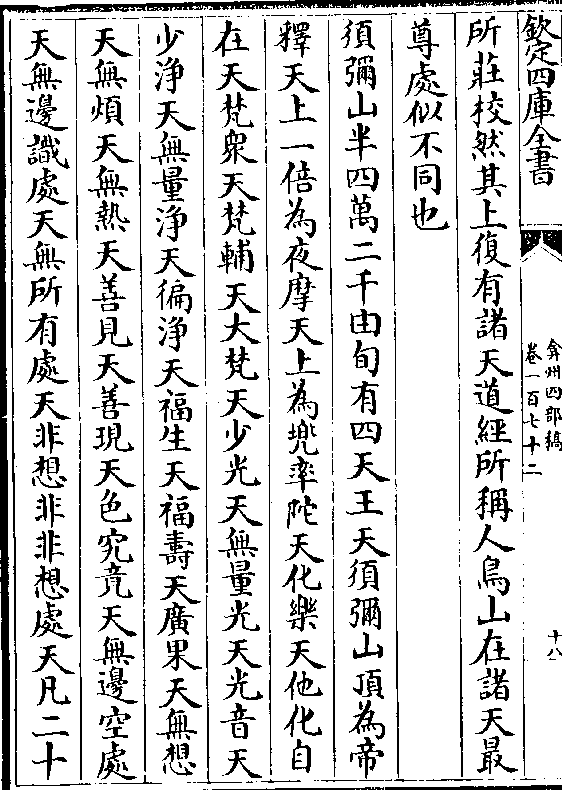 欽定四庫全書
弇州四部稿
卷一百七十二
十八
所莊校然其上復有諸天道經所稱人鳥山在諸天最
尊處似不同也
須彌山半四萬二千由旬有四天王天須彌山頂為帝
釋天上一倍為夜摩天上為兜率陀天化樂天他化自
在天梵衆天梵輔天大梵天少光天無量光天光音天
少淨天無量淨天徧淨天福生天福壽天廣果天無想
天無煩天無熱天善見天善現天色究竟天無邊空處
天無邊識處天無所有處天非想非非想處天凡二十